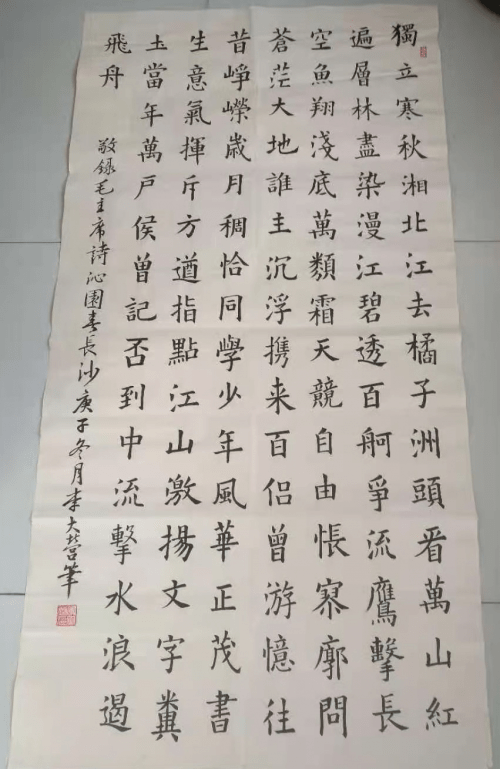 獨立寒秋湘北江去橘子洲頭看萬山紅
遍層林盡染漫江碧透百舸爭流鷹擊長
空魚翔淺底萬類霜天競自由悵寥廓問
蒼茫大地誰主沉浮携来百侣曾游憶往
昔崢嶸歲月稠恰同學少年風華正茂書
生意氣揮斥方遒指點江山激揚文字糞
土當年萬戶侯曾記否到中流擊水浪遏
飛舟
敬録毛主席詩沁園春長沙庚子冬月李大營筆